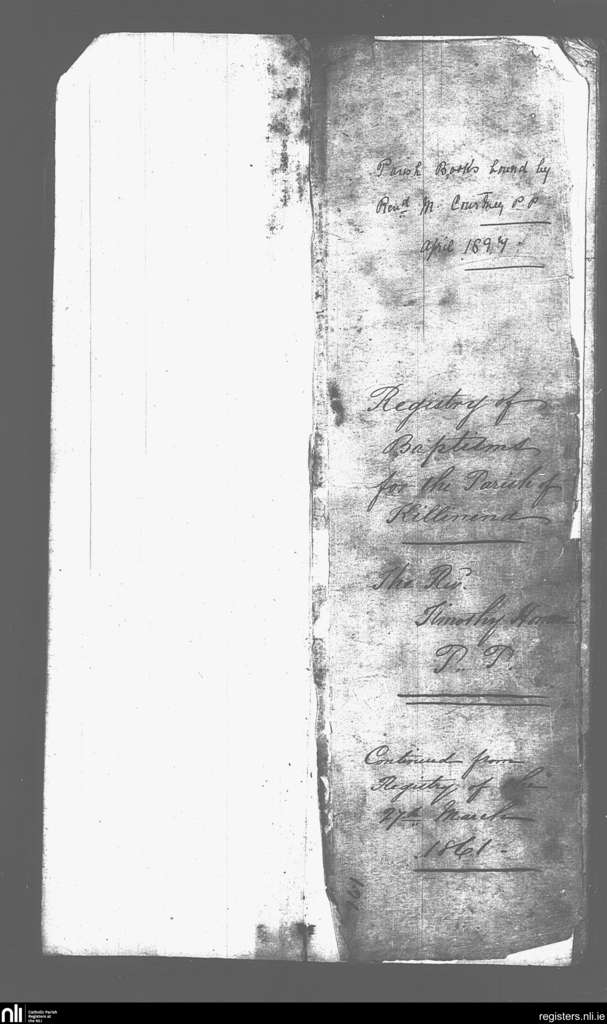 Parish Books bound by
Revd M. Courtney P.P.
April 1897
Registry of
Baptisms
for the Parish of
Killinend
The Rev.
Timothy Horan
P. P.
Continued from
Registry of the
27th March
1861
nli
Catholic Parish
Registers at
the NLI
registers.nli.ie